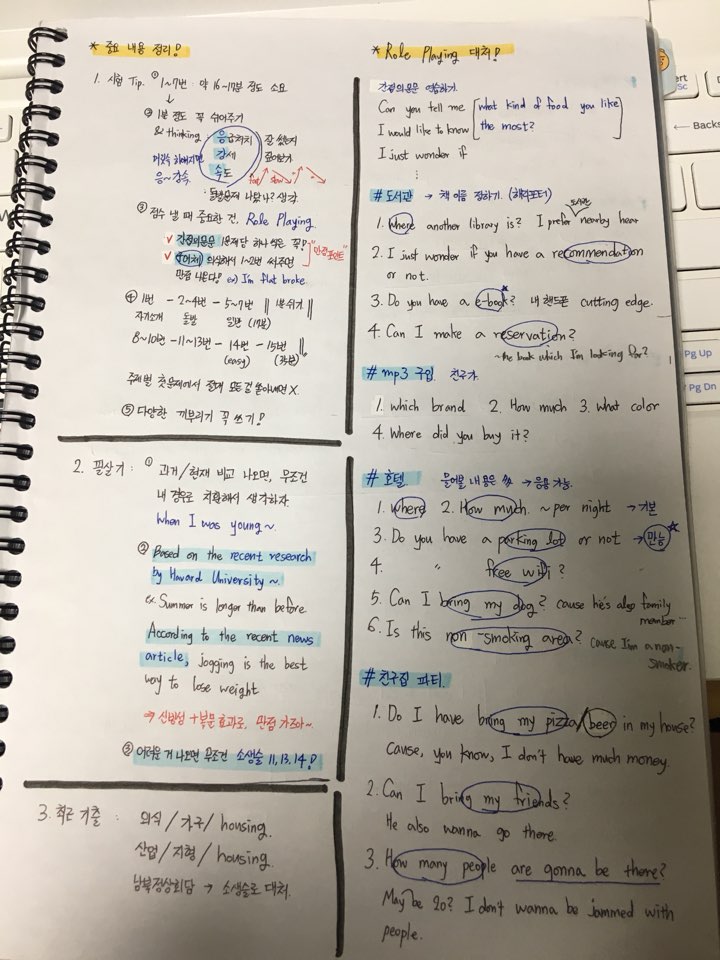 * 중요 내용 정리!
1. 시험 Tip. ① 1~7번 : 약 16~17분 정도 소요
↓
② 1분 정도 꼭 쉬어주기
& thinking : 응급처치 잘 했는지
강세 짚어보기
응~강속. 속도
돌발문제 나왔나? 생각.
③ 점수 낼 때 중요한 건, Role Playing
✓ 간접의문문 1문제당 하나씩은 꼭!
✓ 구어체 의식해서 1~2번 써주면 "만점포인트"
만점 나온다! ex) I'm flat broke.
④ 1번 - 2~4번 - 5~7번 || 1분쉬기 ||
자기소개 돌발 일반 (17분)
8~10번 - 11~13번 - 14번 - 15번
(easy)
주제별 첫문제에서 절대 모든걸 쏟아내면 X.
⑤ 다양한 끼부리기 꼭 쓰기!
2. 필살기 : ① 과거/현재 비교 나오면, 무조건
내 경우로 치환해서 생각하자.
When I was young ~.
② Based on the recent research
by Havard University ~.
ex. Summer is longer than before.
According to the recent news
article, jogging is the best
way to lose weight
⇒ 신빙성 + 복문 효과로, 만점 가즈아~.
③ 어려운 거 나오면 무조건 소생술 11, 13, 14!
3. 최근 기출 : 외식 / 가구 / housing.
산업 / 지형 / housing.
남북정상회담 → 소생술로 대처.
* Role Playing 대처!
간접의문문 연습하기.
Can you tell me [what kind of food you like
I would like to know the most?]
I just wonder if
⋮
# 도서관 → 책 이름 정하기. (해리포터)
도서관
1. Where another library is? I prefer nearby hear
2. I just wonder if you have a recommendation
or not.
3. Do you have a e-book? 내 핸드폰 cutting edge.
4. Can I make a reservation?
~the book which I'm looking for?
# mp3 구입. 친구가.
1. which brand 2. How much 3. what color
4. Where did you buy it?
# 호텔 물어볼 내용은 多 → 응용 가능.
1. where 2. How much. ~per night → 기본
3. Do you have a parking lot or not → 만능
4. " free wifi?
5. Can I bring my dog? cause he's also family
member...
6. Is this non-smoking area? cause I'm a non-
smoker.
# 친구집 파티.
1. Do I have bring my pizza/beer in my house?
Cause, you know, I don't have much money.
2. Can I bring my friends?
He also wanna go there.
3. How many people are gonna be there?
May be 20? I don't wanna be jammed with
people.
← Backs
Pg Up
Pg Dn